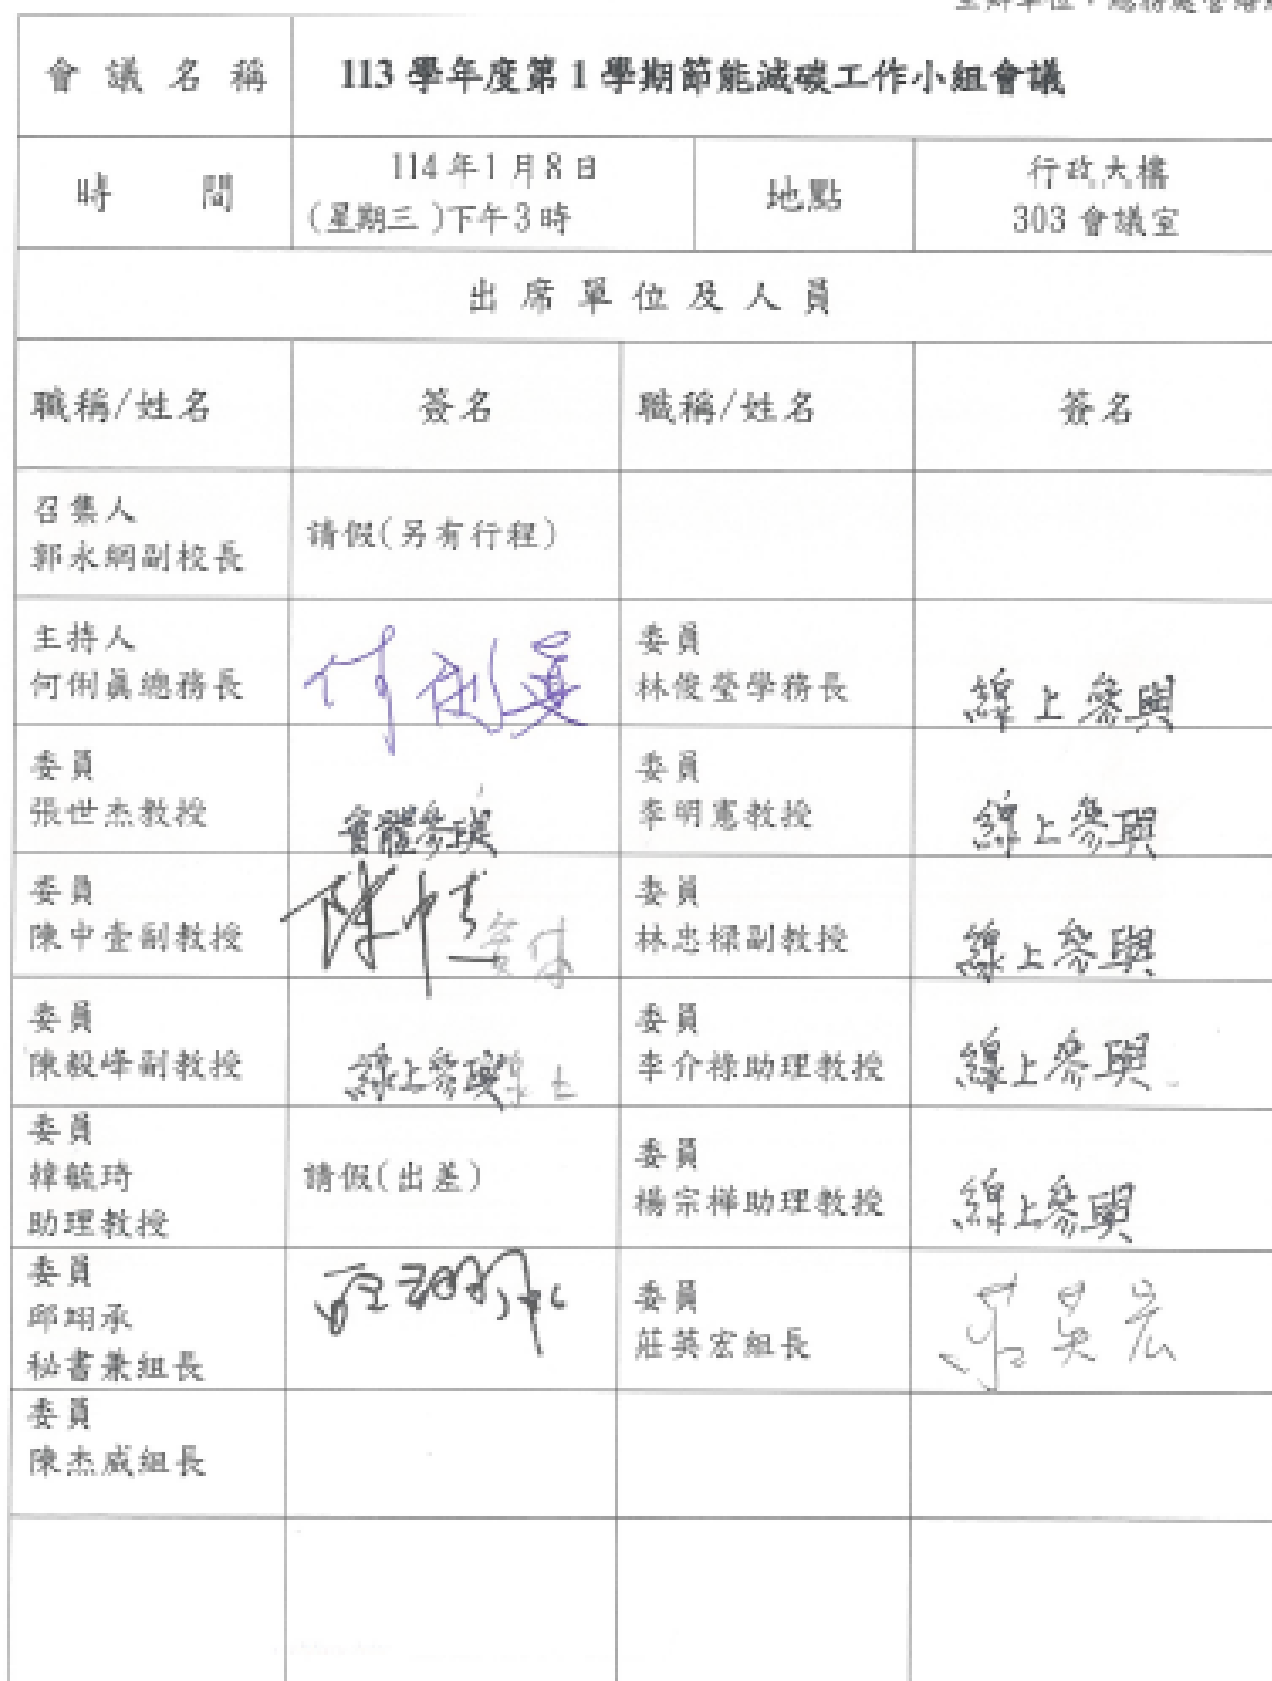 會議名稱
113 學年度第 1 學期節能減碳工作小組會議
時 間
114 年 1 月 8 日
(星期三)下午 3 時
地點
行政大樓
303 會議室
出席單位及人員
職稱/姓名
簽名
職稱/姓名
簽名
召集人
郭永綱副校長
請假(另有行程)
主持人
何俐真總務長
何俐真
委員
林俊瑩學務長
線上參與
委員
張世杰教授
實體參與
委員
李明憲教授
線上參與
委員
陳中壹副教授
委員
林忠樑副教授
線上參與
委員
陳毅峰副教授
線上參與
委員
李介祿助理教授
線上參與
委員
韓毓琦
助理教授
請假(出差)
委員
楊宗樺助理教授
線上參與
委員
邱翊承
秘書兼組長
委員
莊英宏組長
莊英宏
委員
陳杰威組長